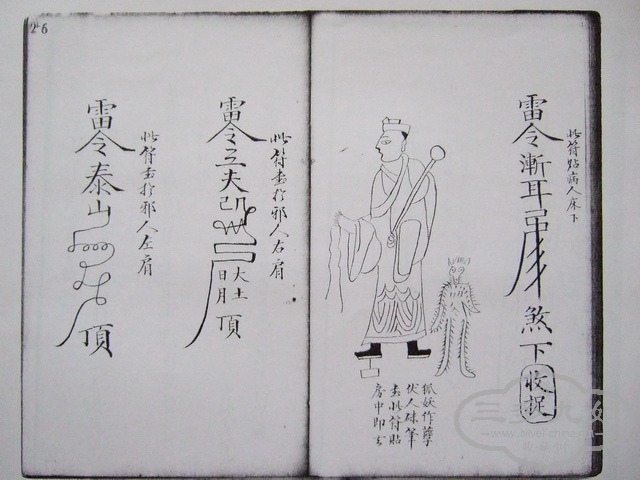 此符貼病人床下
雷令漸耳
煞下
收捉
狐妖作孽
伏人硃筆
畫此符貼
房中即去
26
此符畫於邪人右肩
雷令
夫
大土
日月
頂
此符畫於邪人左肩
雷令泰山
頂